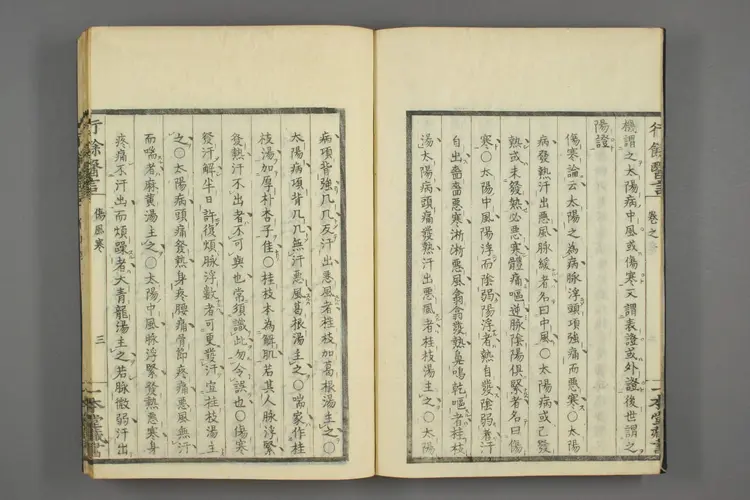 行餘醫言 卷之
機謂之太陽病中風或傷寒又謂表證或外證後世謂之
陽證
傷寒論云太陽之為病脉浮頭項強痛而惡寒○太陽
病發熱汗出惡風脉緩者名曰中風○太陽病或已發
熱或未發熱必惡寒體痛嘔逆脉陰陽俱緊者名曰傷
寒○太陽中風陽浮而陰弱陽浮者熱自發陰弱者汗
自出嗇嗇惡寒淅淅惡風翕翕發熱鼻鳴乾嘔者桂枝
湯太陽病頭痛發熱汗出惡風者桂枝湯主之○太陽
病項背強几几反汗出惡風者桂枝加葛根湯主之○
太陽病項背几几無汗惡風葛根湯主之○喘家作桂
枝湯加厚朴杏子佳○桂枝本為解肌若其人脉浮緊
發熱汗不出者不可與也常須識此勿令誤也○傷寒
發汗解半日許復煩脉浮數者可更發汗宜桂枝湯主
之○太陽病頭痛發熱身疼腰痛骨節疼痛惡風無汗
而喘者麻黃湯主之○太陽中風脉浮緊發熱惡寒身
疼痛不汗出而煩躁者大青龍湯主之若脉微弱汗出
行餘醫言 傷風寒 三 一本堂藏書